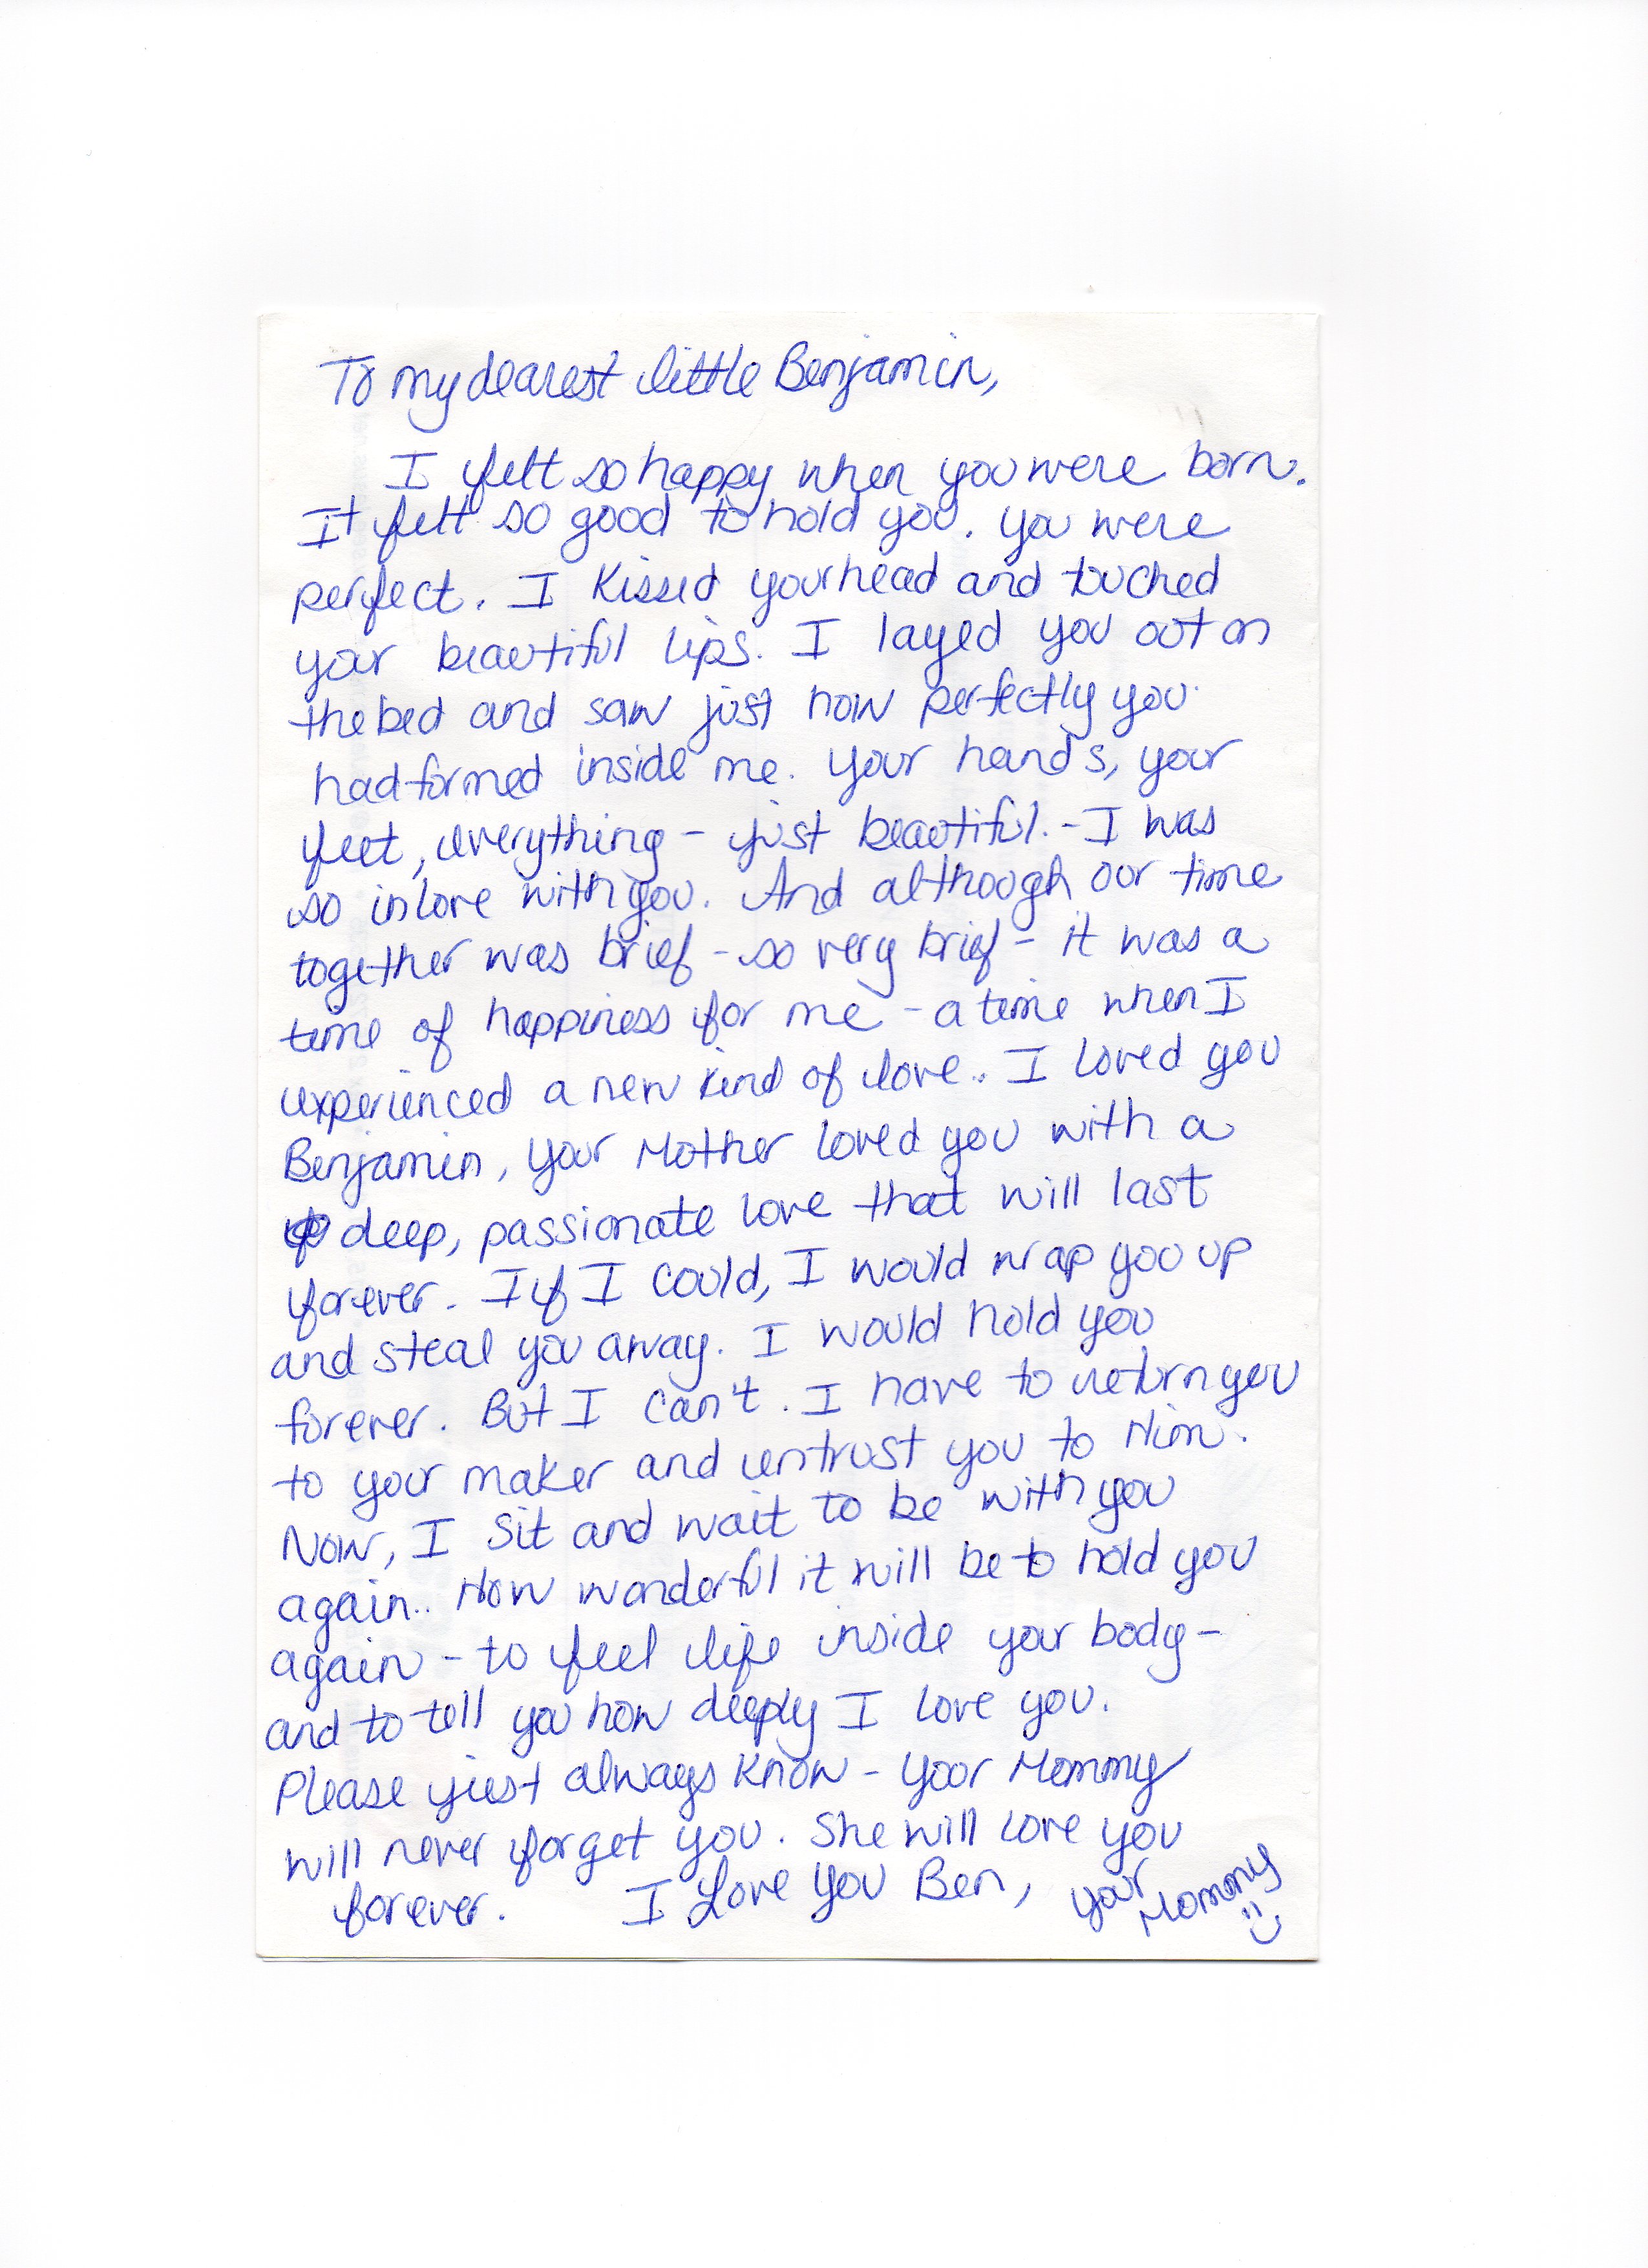 To my dearest little Benjamin,
I felt so happy when you were born.
It felt so good to hold you. You were
perfect. I kissed your head and touched
your beautiful lips. I layed you out on
the bed and saw just how perfectly you
had formed inside me. Your hands, your
feet, everything - just beautiful. - I was
so in love with you. And although our time
together was brief - so very brief - it was a
time of happiness for me - a time when I
experienced a new kind of love.. I loved you
Benjamin, your Mother loved you with a
deep, passionate love that will last
forever. If I could, I would wrap you up
and steal you away. I would hold you
forever. But I can't. I have to return you
to your maker and entrust you to Him.
Now, I sit and wait to be with you
again.. How wonderful it will be to hold you
again - to feel life inside your body -
and to tell you how deeply I love you.
Please just always know - your Mommy
will never forget you. She will love you
forever. I Love You Ben, your Mommy